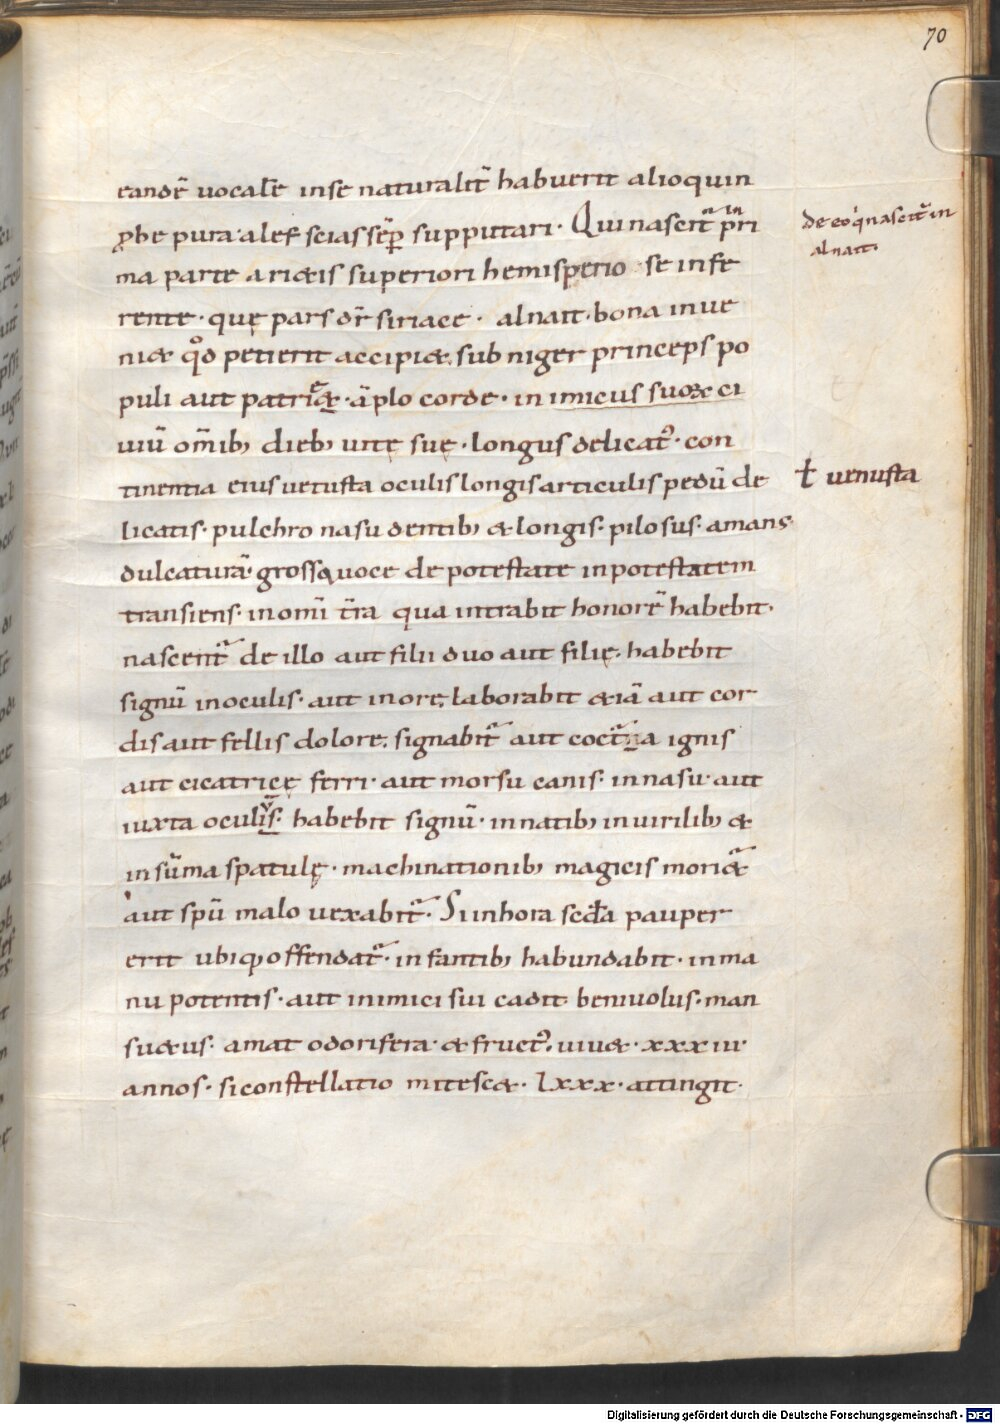 70
eandē uocalē inse naturalit̄ habuerit alioquin
ꝓbe pura alef scias sēp supputtari · Qui nascit̄ in pri
de eo qi nascit̄ in
alnait.
ma parte arietis superiori hemisperio se infe
riore · quę pars dr̄ siriace · alnait · bona inue
niet qd̊ petierit accipiet. sub niger princeps po
puli aut patriȩ · āplo corde · inimicus suoꝝ ci
uiū om̄ib; dieb; uitę suę · longus delicat᷒ · con
tinentia eius uetusta oculis longis articulis pedū de
ł uenusta
licatis · pulchro nasu dentib; & longis · pilosus · amans
dulcaturā · grossaq; uoce de potestate in potestatem
transiens · in omī t̄ra qua intrabit honorē habebit ·
nascent̄ de illo aut filii duo aut filię · habebit
signū in oculis · aut in ore, laborabit &iā aut cor
dis aut fellis dolore. signabit̄ aut coctura ignis
aut cicatricę ferri · aut morsu canis · in nasu · aut
iuxta oculos · habebit signū · in natib; in uirilib; &
in sūma spatulę · machinationib; magicis moriet̄
aut spū malo uexabit̄ · Si in hora scd̄a pauper
erit ubiq; offendat̄ · infantib; habundabit · in ma
nu potentis · aut inimici sui cadit beniuolus · man
su&us · amat odorifera · & fruct᷒. uiu& · xxxiii ·
annos · si constellatio mitesc& · lxxx · attingit ·
Digitalisierung gefördert durch die Deutsche Forschungsgemeinschaft - DFG